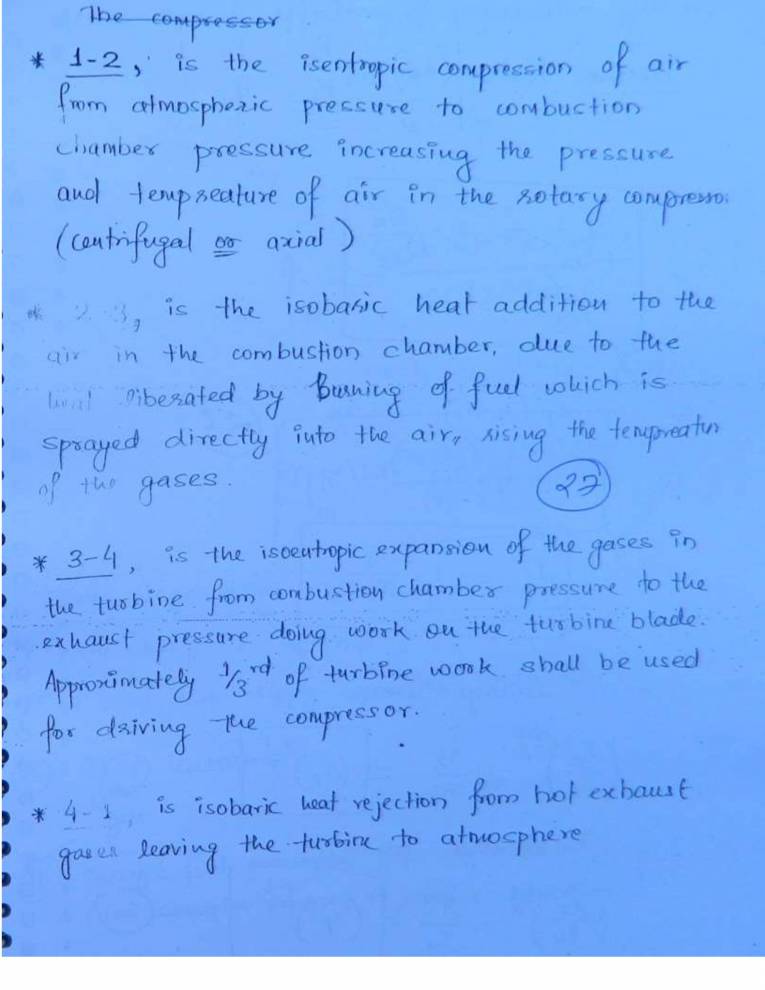 The compressor
* 1-2, is the isentropic compression of air
from atmospheric pressure to combustion
chamber pressure increasing the pressure
and tempreature of air in the rotary compressor
(centrifugal or axial)
* 2-3, is the isobaric heat addition to the
air in the combustion chamber, due to the
heat liberated by Burning of fuel which is
sprayed directly into the air, rising the tempreatur
of the gases.
27
* 3-4, is the isoentropic expansion of the gases in
the turbine from combustion chamber pressure to the
exhaust pressure doing work on the turbine blade.
Approximately 1/3rd of turbine work shall be used
for driving the compressor.
* 4-1, is isobaric heat rejection from hot exhaust
gases leaving the turbine to atmosphere